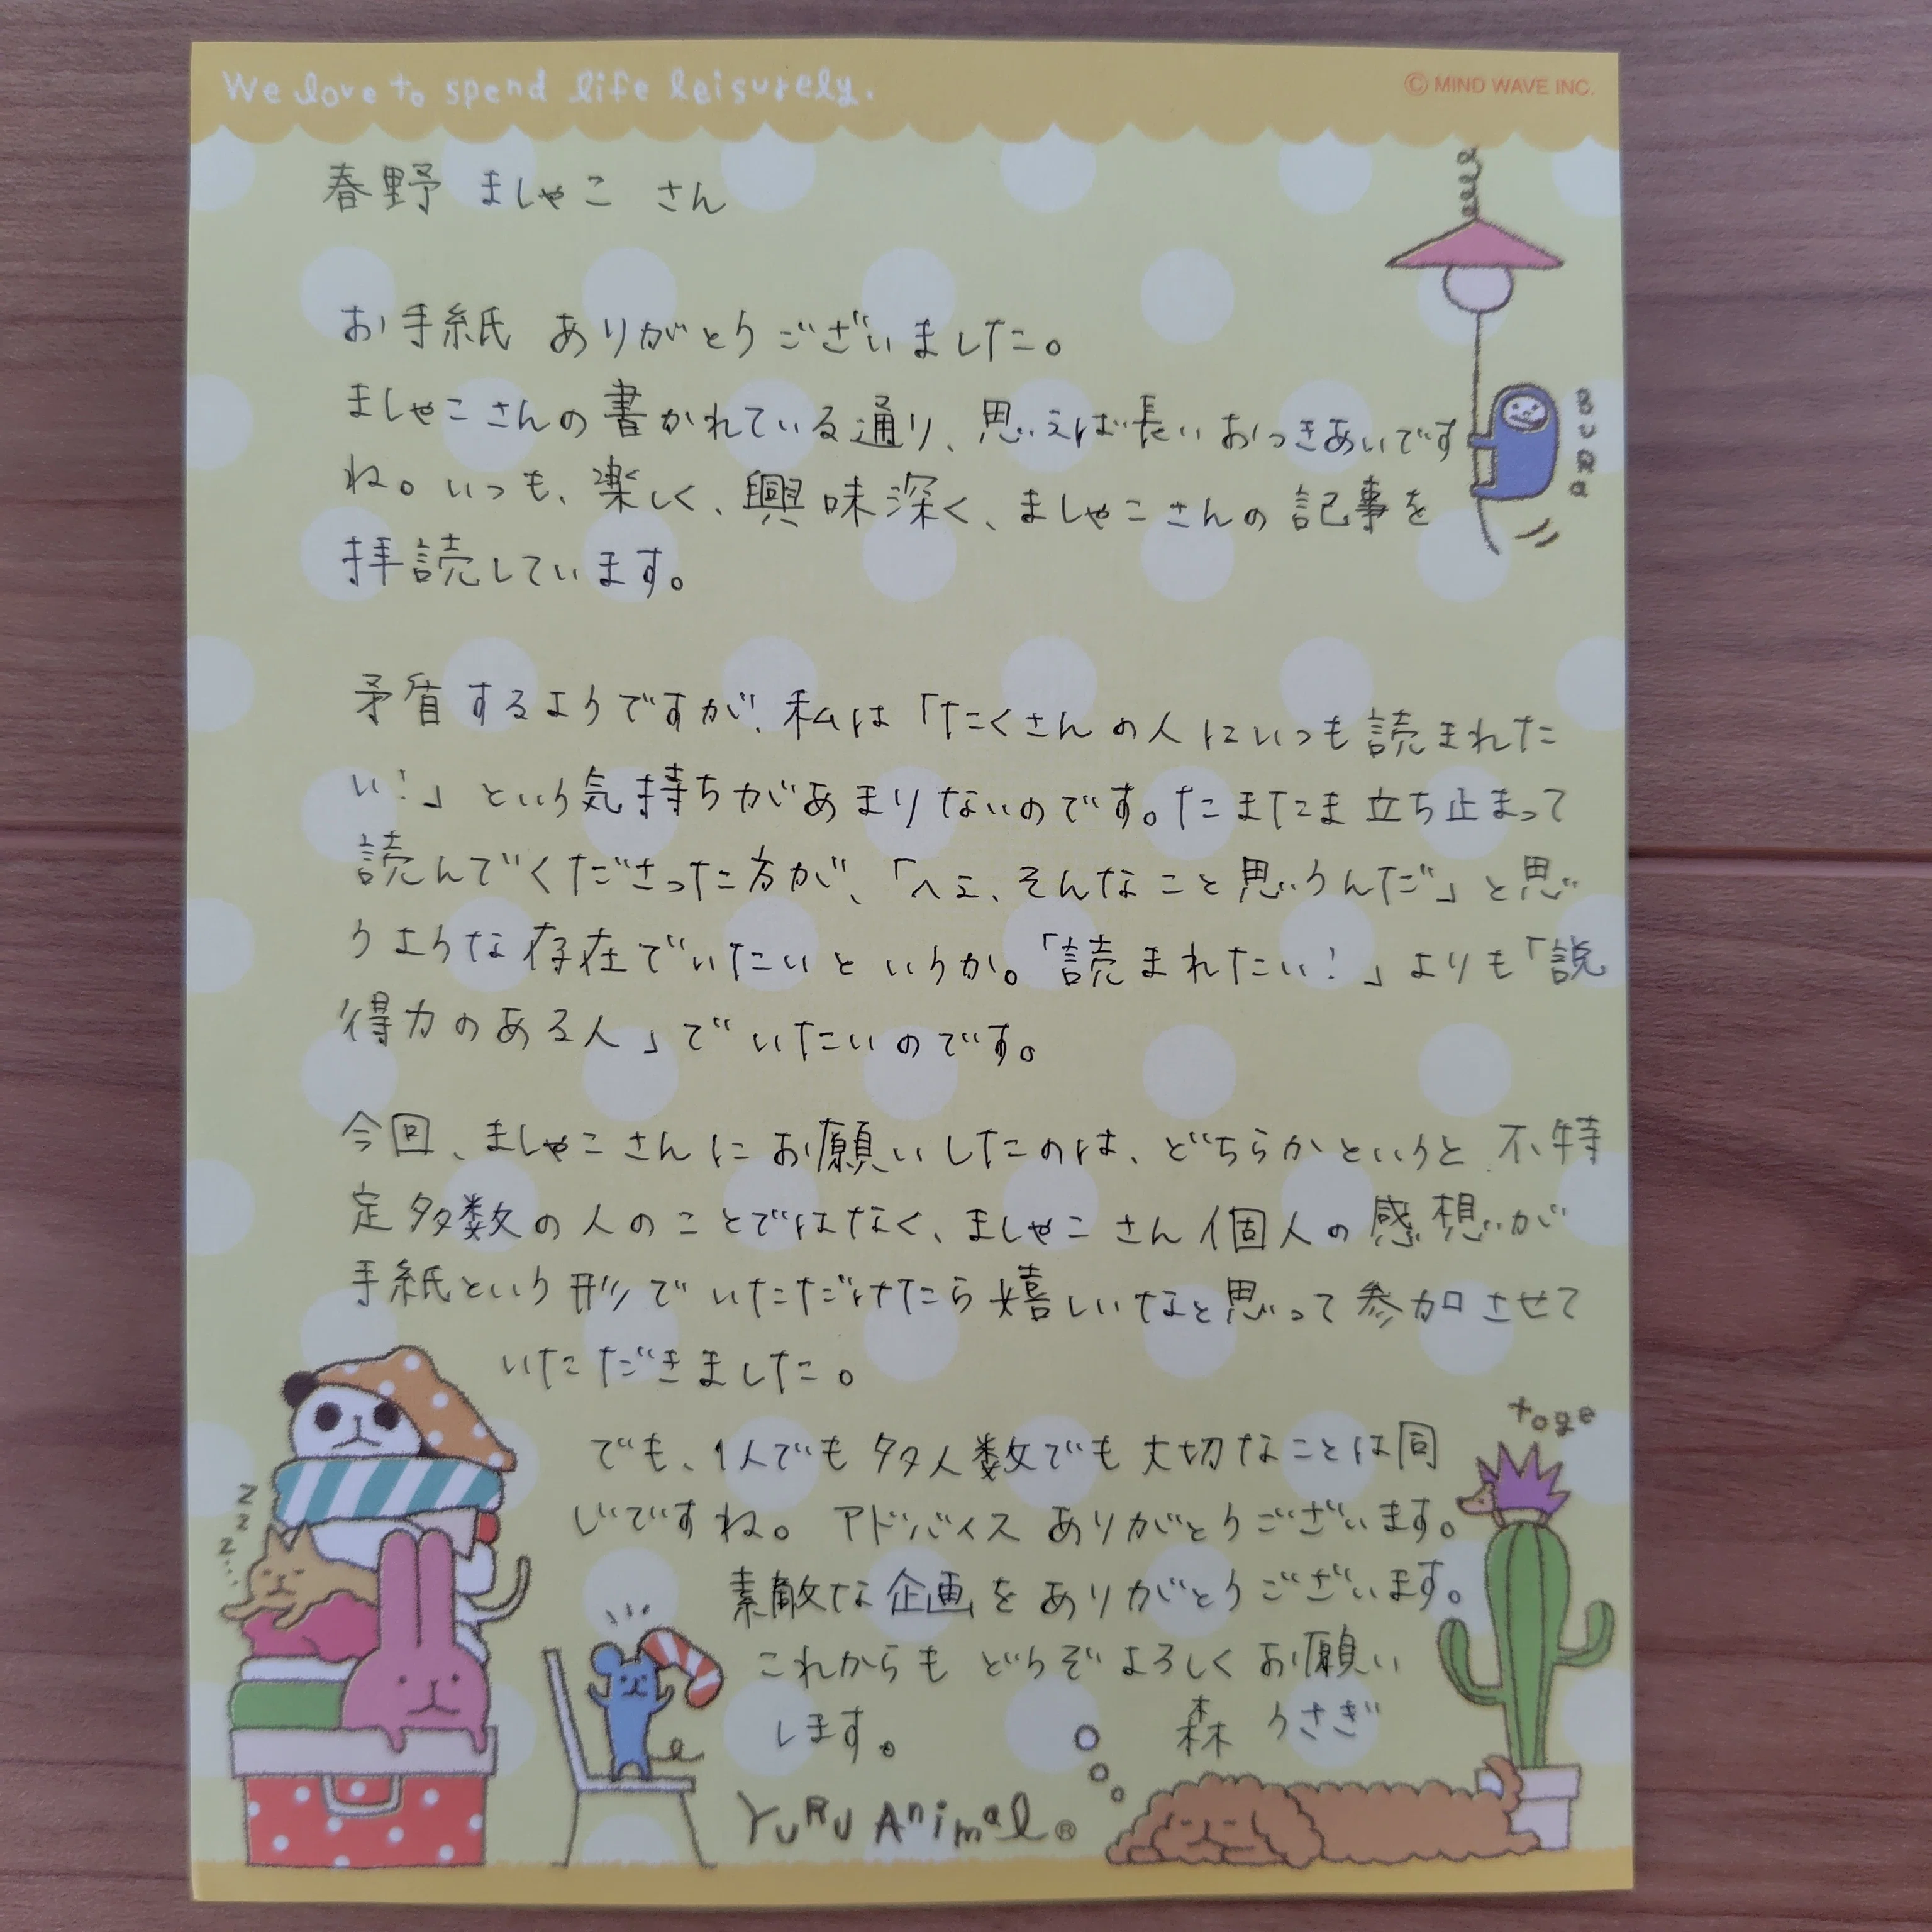 We love to spend life leisurely.
© MIND WAVE INC.
春野 ましゃこ さん
お手紙 ありがとうございました。
ましゃこさんの書かれている通り、思えば長いおつきあいです
ね。いつも、楽しく、興味深く、ましゃこさんの記事を
拝読しています。
BURA
矛盾するようですが、私は「たくさんの人にいつも読まれた
い!」という気持ちがあまりないのです。たまたま立ち止まって
読んでくださった方が、「へェ、そんなこと思うんだ」と思
うような存在でいたいというか。「読まれたい!」よりも「説
得力のある人」でいたいのです。
今回、ましゃこさんにお願いしたのは、どちらかというと、不特
定多数の人のことではなく、ましゃこさん個人の感想が
手紙という形でいただけたら嬉しいなと思って参加させて
いただきました。
toge
でも、1人でも多人数でも大切なことは同
じですね。アドバイスありがとうございます。
zzz...
素敵な企画をありがとうございます。
これからも どうぞよろしくお願い
します。
森 うさぎ
YURU AnimaL®